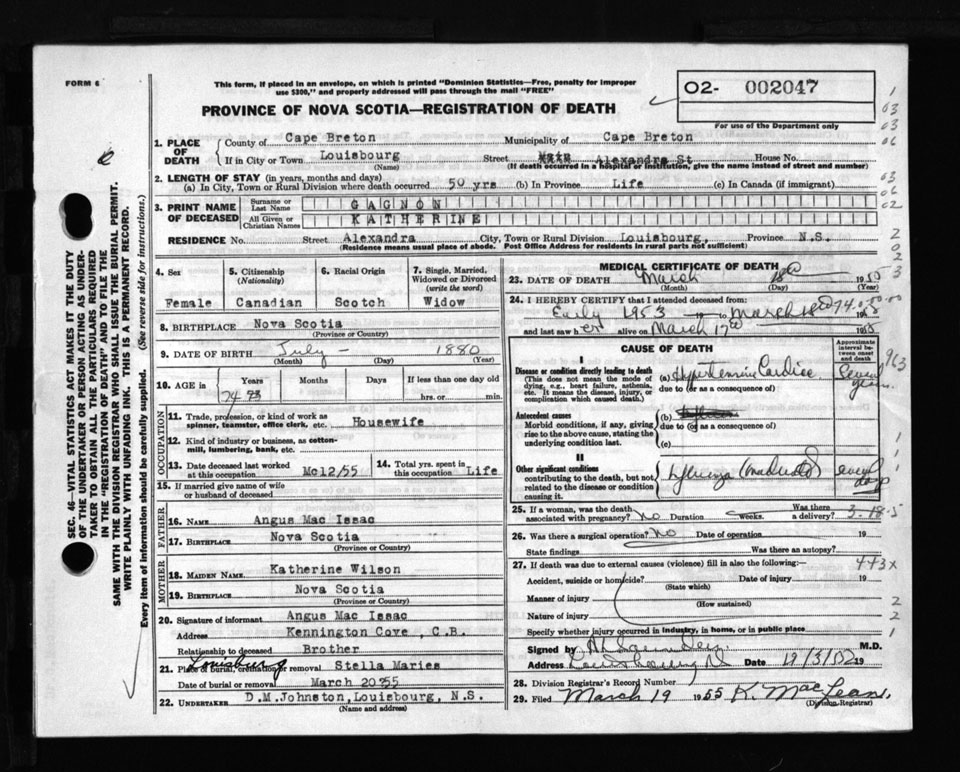 FORM 6
This form, if placed in an envelope, on which is printed "Dominion Statistics—Free, penalty for improper
use $300," and properly addressed will pass through the mail "FREE"
PROVINCE OF NOVA SCOTIA—REGISTRATION OF DEATH
O2- 002047
For use of the Department only
SEC. 46—VITAL STATISTICS ACT MAKES IT THE DUTY
OF THE UNDERTAKER OR PERSON ACTING AS UNDER-
TAKER TO OBTAIN ALL THE PARTICULARS REQUIRED
IN THE "REGISTRATION OF DEATH" AND TO FILE THE
SAME WITH THE DIVISION REGISTRAR WHO SHALL ISSUE THE BURIAL PERMIT.
WRITE PLAINLY WITH UNFADING INK. THIS IS A PERMANENT RECORD.
Every item of information should be carefully supplied. (See reverse side for instructions.)
1. PLACE OF DEATH
County of Cape Breton Municipality of Cape Breton
If in City or Town Louisbourg Street Alexandra St House No.
(Name) (If death occurred in a hospital or institution, give the name instead of street and number)
2. LENGTH OF STAY (in years, months and days)
(a) In City, Town or Rural Division where death occurred 50 yrs (b) In Province Life (c) In Canada (if immigrant)
3. PRINT NAME OF DECEASED
Surname or Last Name GAGNON
All Given or Christian Names KATHERINE
RESIDENCE No. Street Alexandra City, Town or Rural Division Louisbourg, Province N.S.
(Residence means usual place of abode. Post Office Address for residents in rural parts not sufficient)
4. Sex
Female
5. Citizenship
(Nationality)
Canadian
6. Racial Origin
Scotch
7. Single, Married,
Widowed or Divorced
(write the word)
Widow
8. BIRTHPLACE Nova Scotia
(Province or Country)
9. DATE OF BIRTH July - 1880
(Month) (Day) (Year)
10. AGE in Years Months Days If less than one day old
74 hrs. or min.
OCCUPATION
11. Trade, profession, or kind of work as
spinner, teamster, office clerk, etc. Housewife
12. Kind of industry or business, as cotton-
mill, lumbering, bank, etc.
13. Date deceased last worked
at this occupation Mc12/55
14. Total yrs. spent in
this occupation Life
15. If married give name of wife
or husband of deceased
FATHER
16. NAME Angus Mac Issac
17. BIRTHPLACE Nova Scotia
(Province or Country)
MOTHER
18. MAIDEN NAME Katherine Wilson
19. BIRTHPLACE Nova Scotia
(Province or Country)
20. Signature of informant Angus Mac Issac
Address Kennington Cove, C.B.
Relationship to deceased Brother
21. Place of burial, cremation or removal Louisburg Stella Maries
Date of burial or removal March 20 55
22. UNDERTAKER D.M.Johnston, Louisbourg, N.S.
(Name and address)
MEDICAL CERTIFICATE OF DEATH
23. DATE OF DEATH March 18 19
(Month) (Day)
24. I HEREBY CERTIFY that I attended deceased from:
Early 1953 to March 18
and last saw her alive on March 17
CAUSE OF DEATH
Approximate
interval be-
tween onset
and death
I
Disease or condition directly leading to death
(This does not mean the mode of
dying, e.g., heart failure, asthenia,
etc. It means the disease, injury, or
complication which caused death.)
(a) Hypertensive Cardiac
due to (or as a consequence of)
Antecedent causes
Morbid conditions, if any, giving
rise to the above cause, stating the
underlying condition last.
(b)
due to (or as a consequence of)
(c)
II
Other significant conditions
contributing to the death, but not
related to the disease or condition
causing it.
Influenza
25. If a woman, was the death
associated with pregnancy? No Duration weeks. Was there
a delivery?
3-18-5
26. Was there a surgical operation? No Date of operation 19
State findings Was there an autopsy?
27. If death was due to external causes (violence) fill in also the following:—
443x
Accident, suicide or homicide? Date of injury 19
(State which)
Manner of injury
(How sustained)
Nature of injury
Specify whether injury occurred in industry, in home, or in public place
Signed by M.D.
Address Date 19
28. Division Registrar's Record Number
29. Filed March 19 1955 K. MacLean.
(Division Registrar)